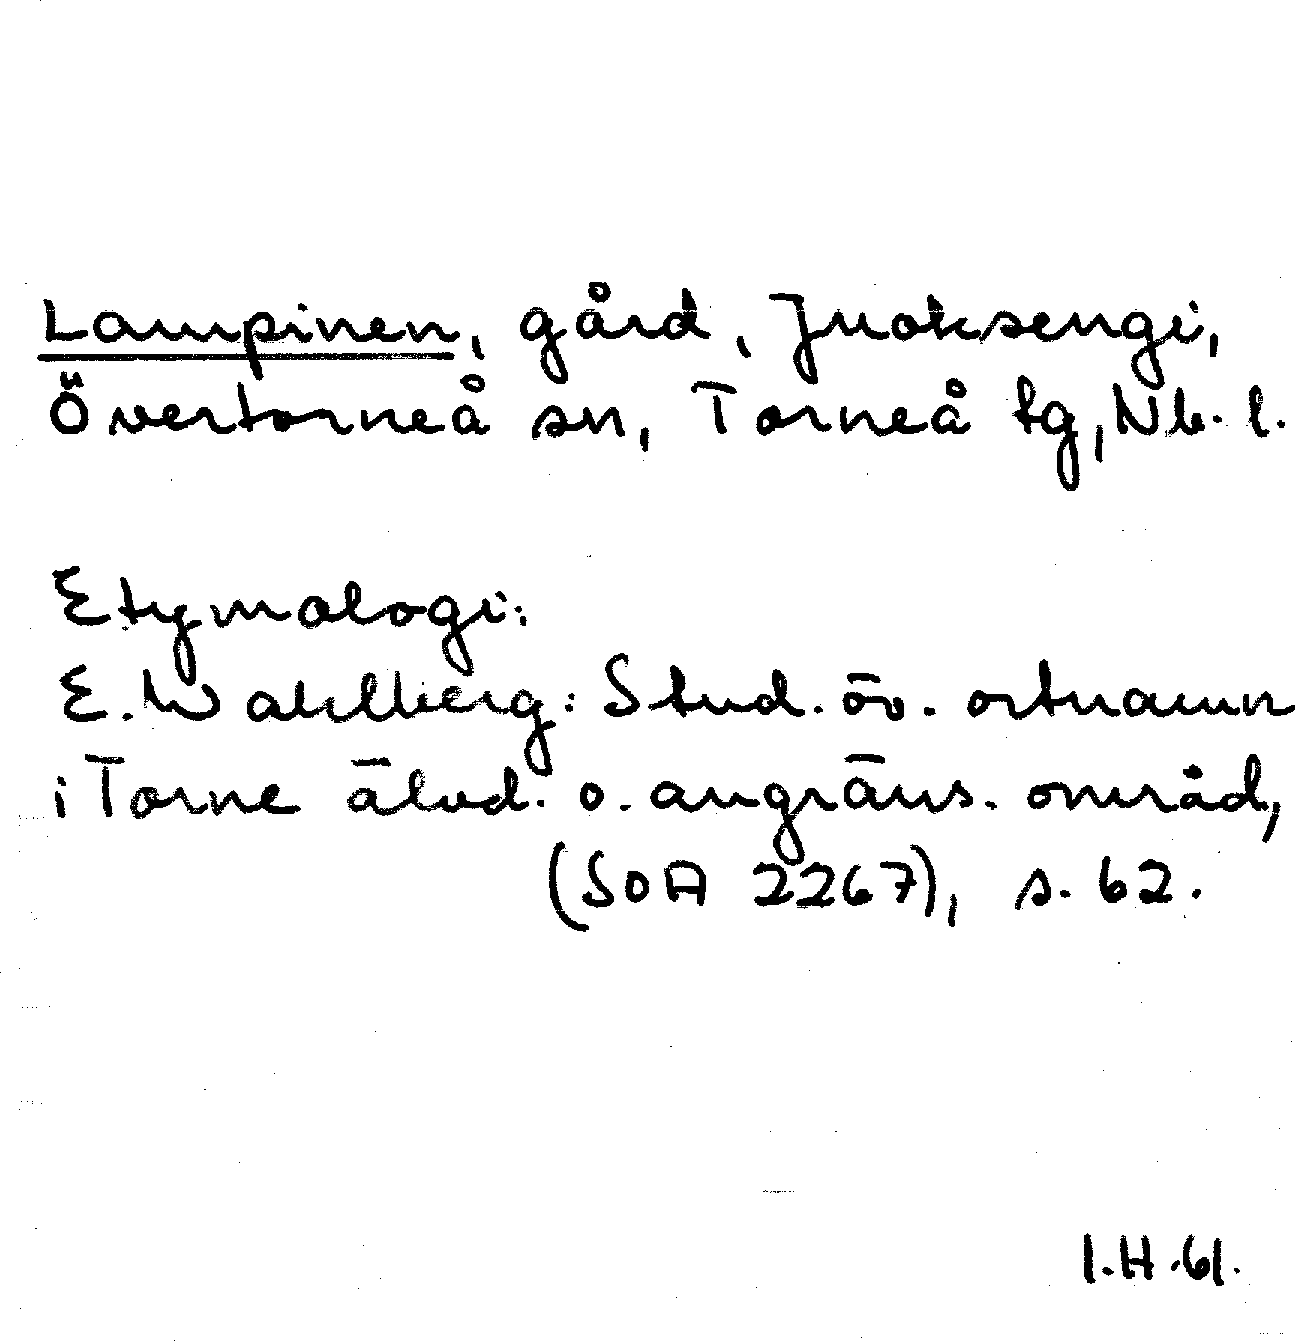 Lampinen, gård, Juoksengi,
Övertorneå sn, Torneå tg, Nb. l.
Etymologi:
E. Wahlberg: Stud. öv. ortnamn
i Torne älvd. o. angräns. område,
(SOA 2267), s. 62.
I.H.61.